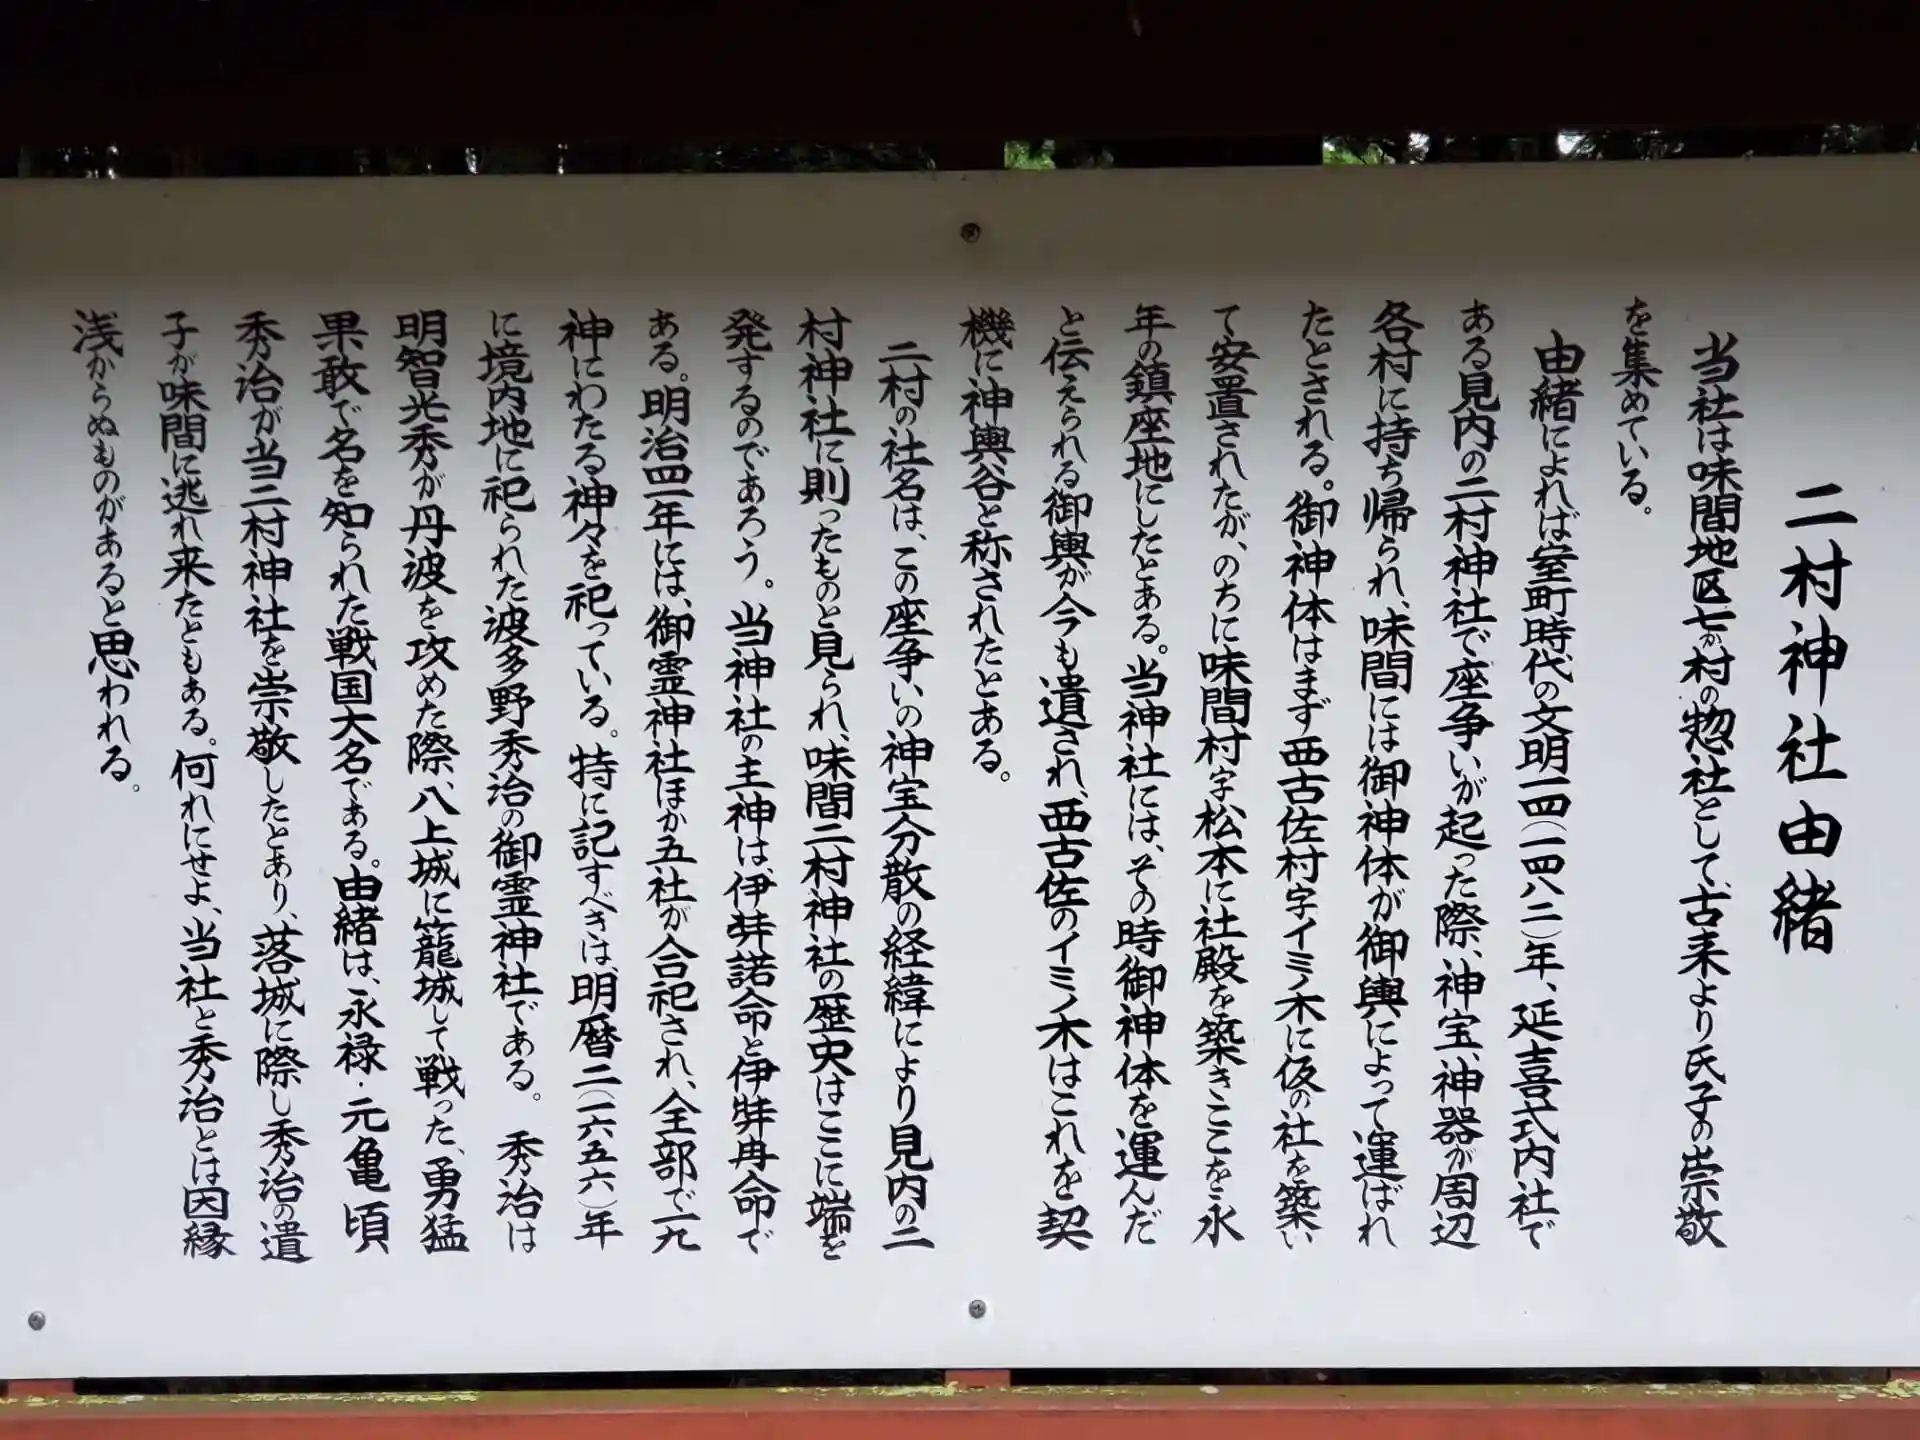 二村神社由緒
当社は味間地区七か村の惣社として、古来より氏子の崇敬
を集めている。
由緒によれば室町時代の文明一四(一四八二)年、延喜式内社で
ある見内の二村神社で座争いが起った際、神宝、神器が周辺
各村に持ち帰られ、味間には御神体が御輿によって運ばれ
たとされる。御神体はまず西古佐村字イミノ木に仮の社を築い
て安置されたが、のちに味間村字松本に社殿を築きここを永
年の鎮座地にしたとある。当神社には、その時御神体を運んだ
と伝えられる御輿が今も遺され、西古佐のイミノ木はこれを契
機に神輿谷と称されたとある。
二村の社名は、この座争いの神宝分散の経緯により見内の二
村神社に則ったものと見られ、味間二村神社の歴史はここに端を
発するのであろう。当神社の主神は、伊弉諾命と伊弉冉命で
ある。明治四一年には、御霊神社ほか五社が合祀され、全部で一九
神にわたる神々を祀っている。特に記すべきは、明暦二(一六五六)年
に境内地に祀られた波多野秀治の御霊神社である。秀治は
明智光秀が丹波を攻めた際、八上城に籠城して戦った、勇猛
果敢で名を知られた戦国大名である。由緒は、永禄・元亀頃
秀治が当二村神社を崇敬したとあり、落城に際し秀治の遺
子が味間に逃れ来たともある。何れにせよ、当社と秀治とは因縁
浅からぬものがあると思われる。